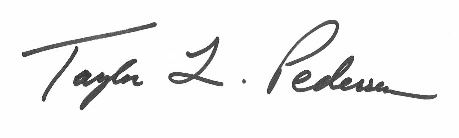 Taylor L. Pedersen